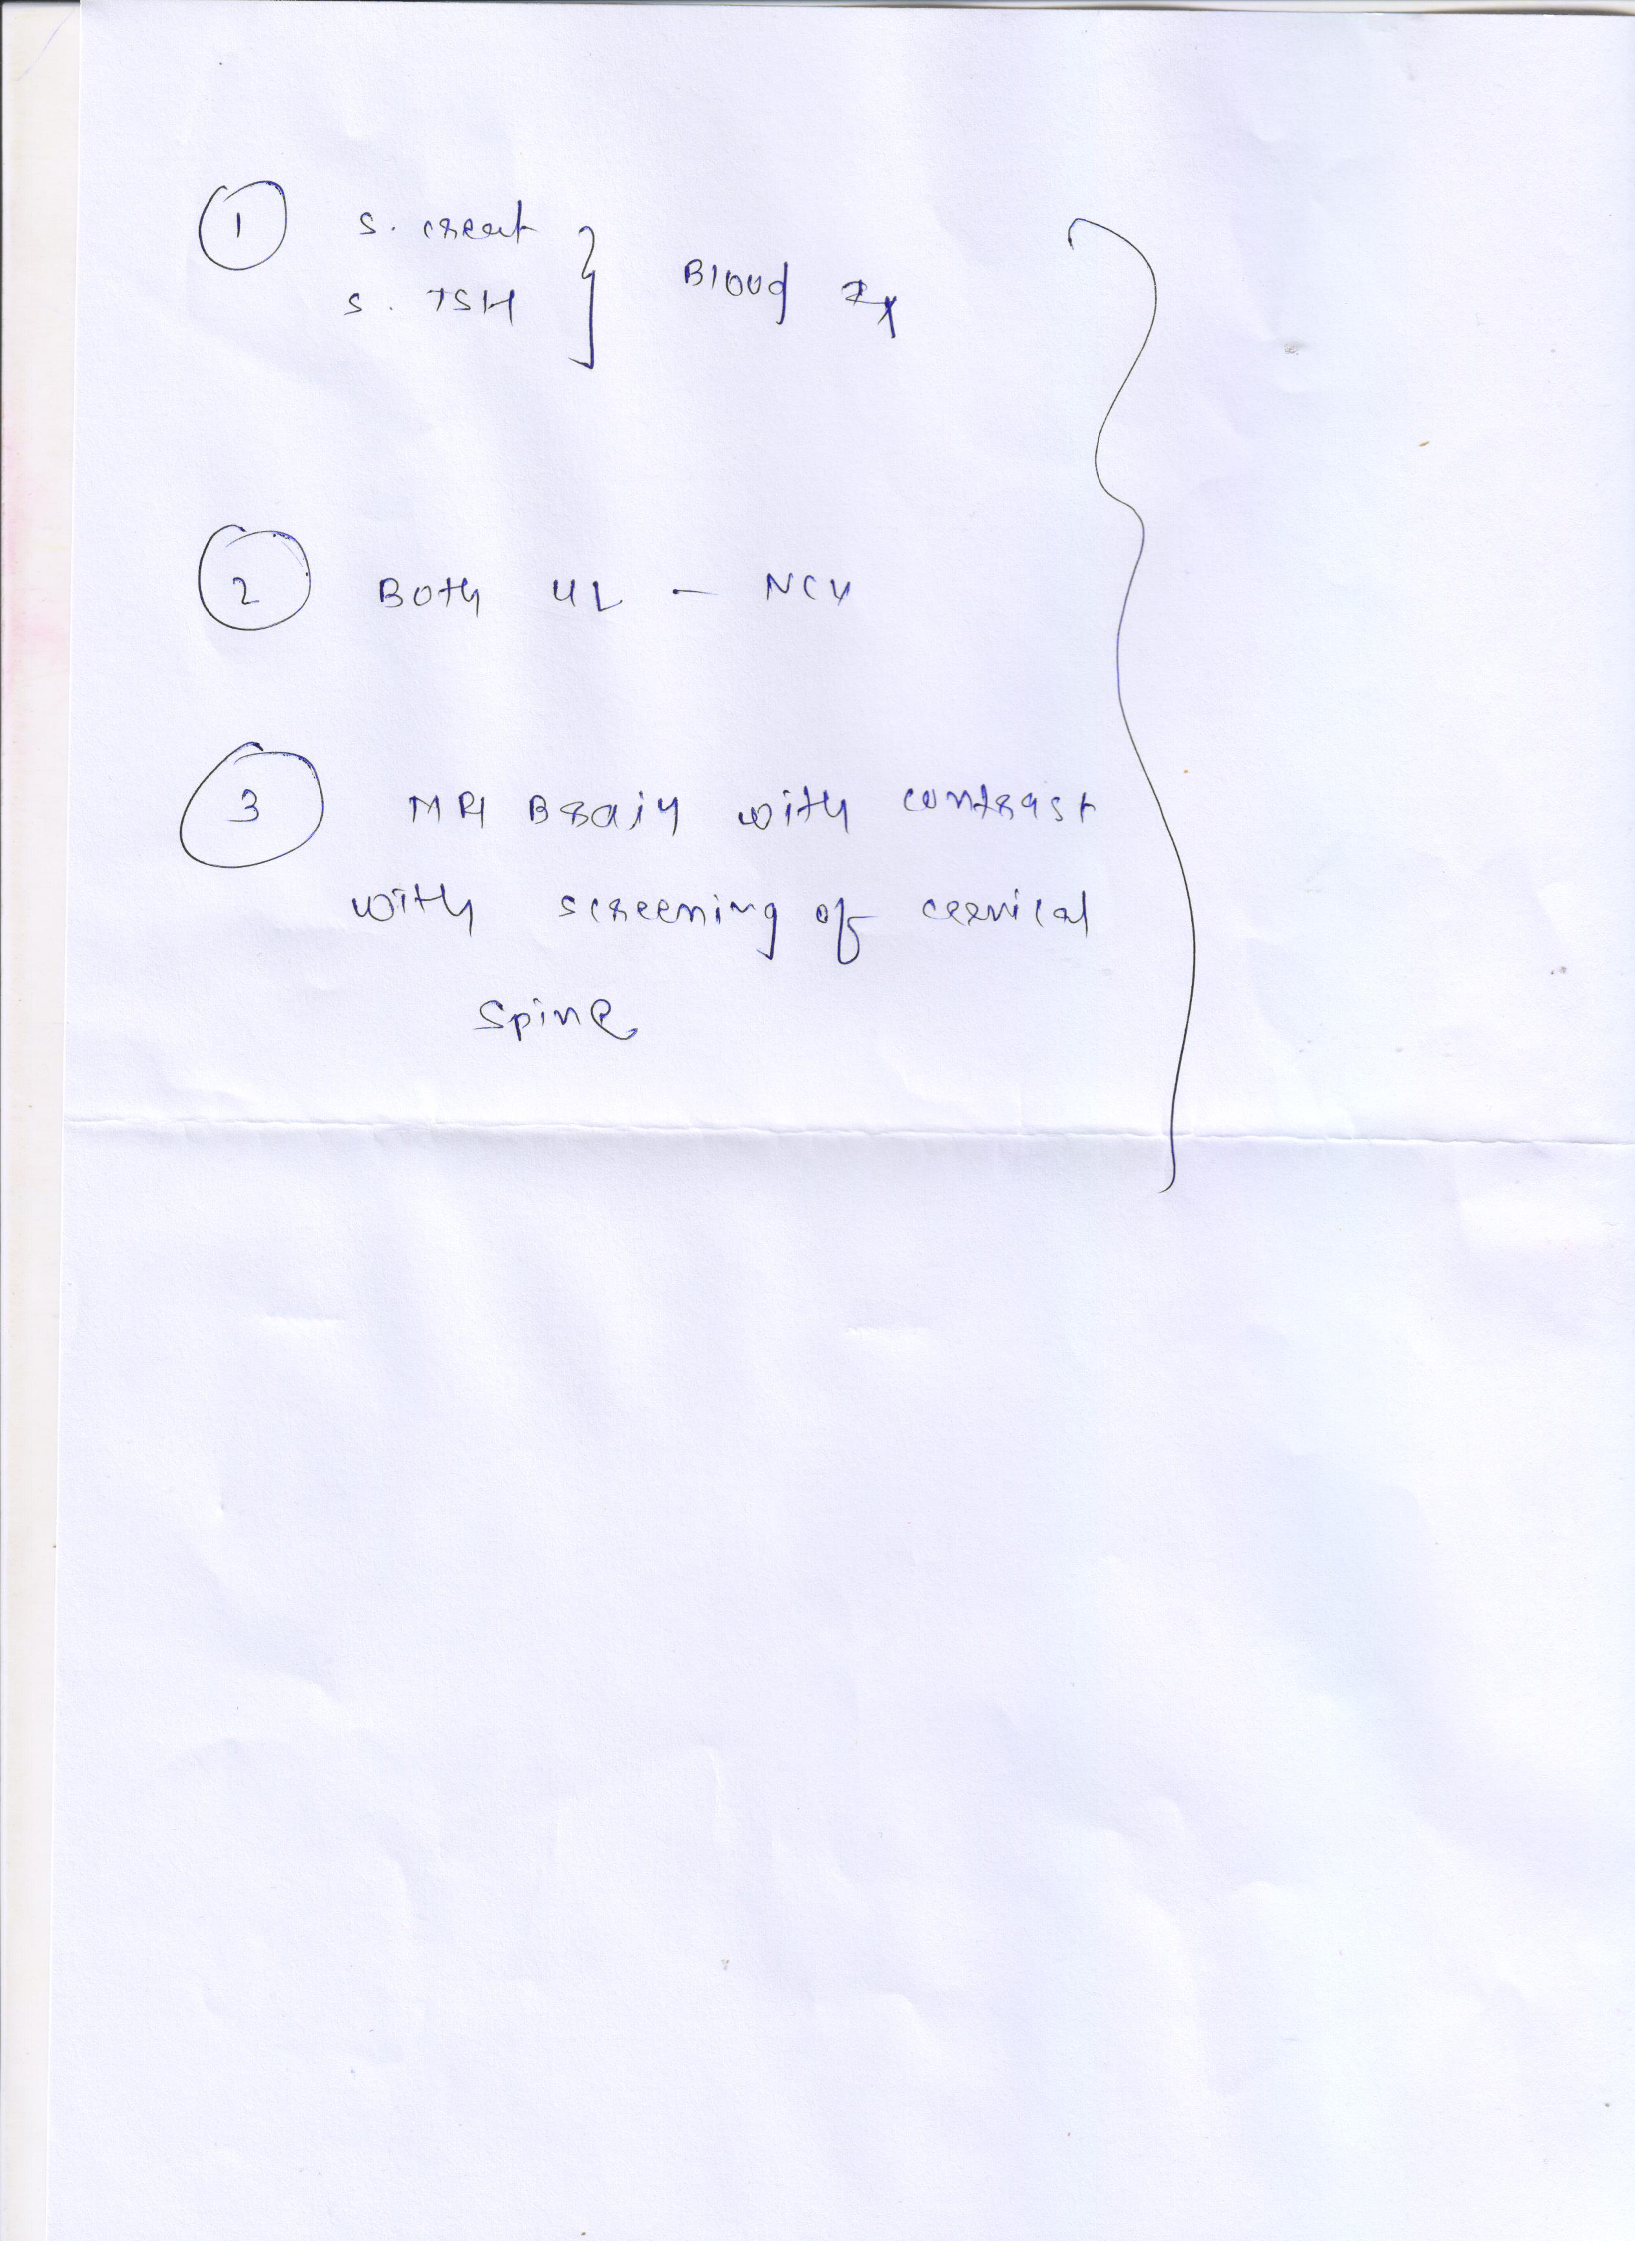 1 S. creat
S. TSH } Blood Ix
2 Both UL - NCV
3 MRI Brain with contrast
with screening of cervical
spine